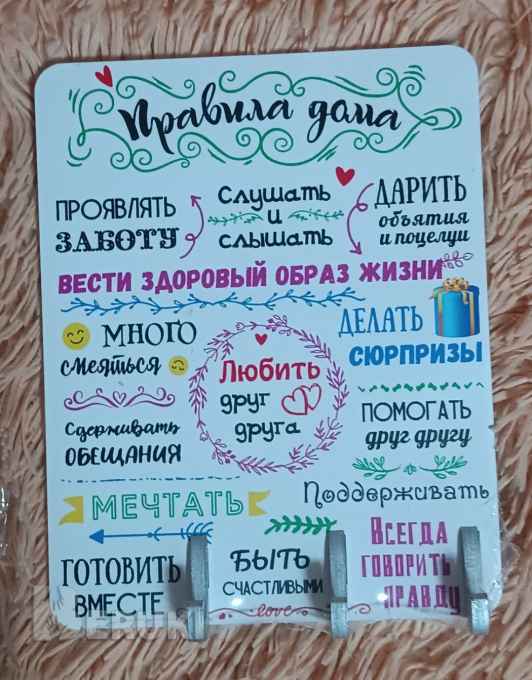 Правила дома
ПРОЯВЛЯТЬ
ЗАБОТУ
Слушать
и
слышать
ДАРИТЬ
объятия
и поцелуи
ВЕСТИ ЗДОРОВЫЙ ОБРАЗ ЖИЗНИ
МНОГО
смеяться
Любить
друг
друга
ДЕЛАТЬ
СЮРПРИЗЫ
Сдерживать
ОБЕЩАНИЯ
ПОМОГАТЬ
друг другу
МЕЧТАТЬ
Поддерживать
ГОТОВИТЬ
ВМЕСТЕ
БЫТЬ
СЧАСТЛИВЫМИ
love
ВСЕГДА
ГОВОРИТЬ
ПРАВДУ